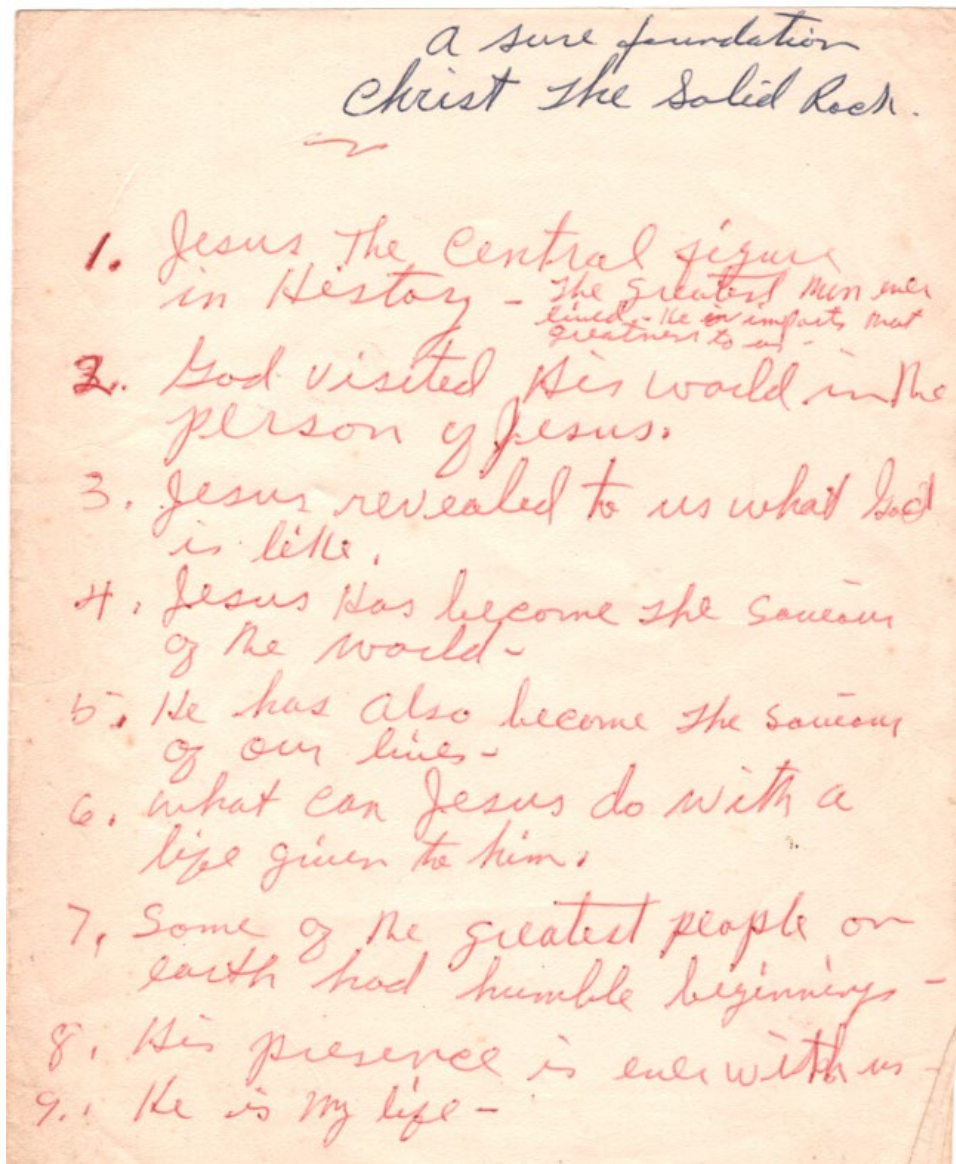 A sure foundation
Christ The Solid Rock.
1. Jesus The Central figure
in History - The greatest Man ever
lived - He imparts that
greatness to us -
2. God visited His world in the
person of Jesus.
3. Jesus revealed to us what God
is like.
4. Jesus Has become The Saviour
of the world -
5. He has also become The Saviour
of our lives -
6. What can Jesus do with a
life given to him.
7. Some of the greatest people on
earth had humble beginnings -
8. His presence is ever with us -
9. He is my life -